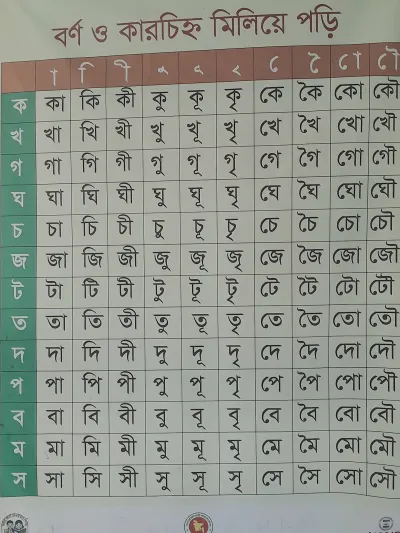 বর্ণ ও কারচিহ্ন মিলিয়ে পড়ি
া ি ী ু ূ ৃ ে ৈ ো ৌ
ক কা কি কী কু কূ কৃ কে কৈ কো কৌ
খ খা খি খী খু খূ খৃ খে খৈ খো খৌ
গ গা গি গী গু গূ গৃ গে গৈ গো গৌ
ঘ ঘা ঘি ঘী ঘু ঘূ ঘৃ ঘে ঘৈ ঘো ঘৌ
চ চা চি চী চু চূ চৃ চে চৈ চো চৌ
জ জা জি জী জু জূ জৃ জে জৈ জো জৌ
ট টা টি টী টু টূ টৃ টে টৈ টো টৌ
ত তা তি তী তু তূ তৃ তে তৈ তো তৌ
দ দা দি দী দু দূ দৃ দে দৈ দো দৌ
প পা পি পী পু পূ পৃ পে পৈ পো পৌ
ব বা বি বী বু বূ বৃ বে বৈ বো বৌ
ম মা মি মী মু মূ মৃ মে মৈ মো মৌ
স সা সি সী সু সূ সৃ সে সৈ সো সৌ